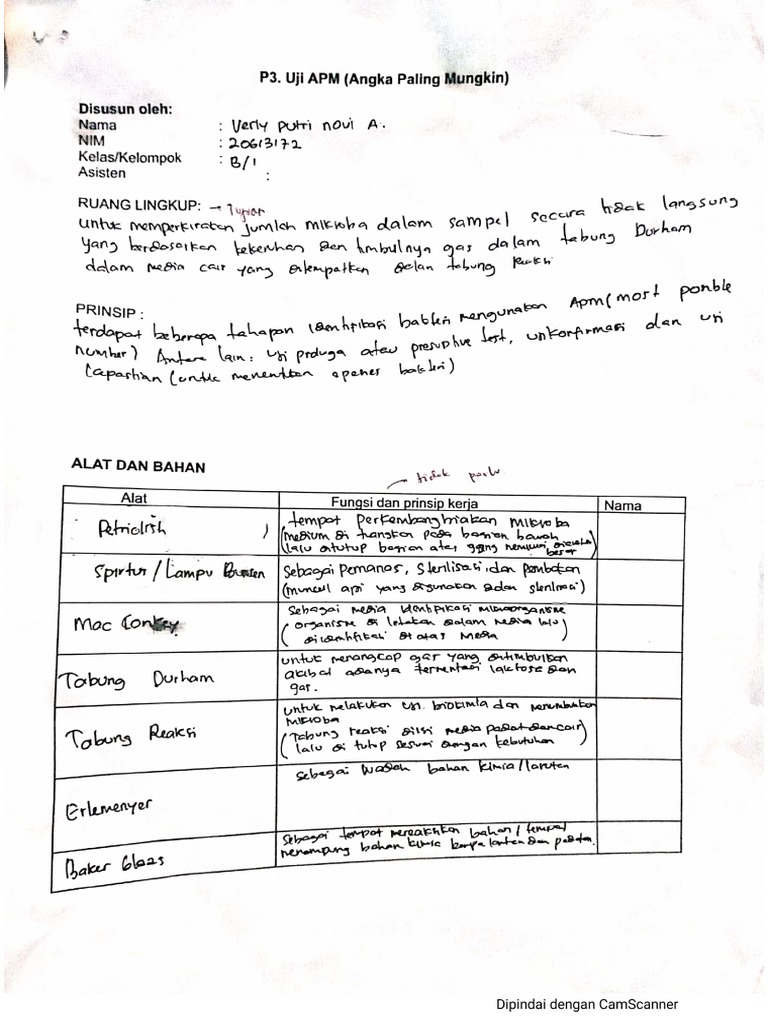 P3. Uji APM (Angka Paling Mungkin)
Disusun oleh:
Nama : Verly putri novi A.
NIM : 20613172
Kelas/Kelompok : B/1
Asisten :
RUANG LINGKUP: → Tujuan
untuk memperkirakan jumlah mikroba dalam sampel secara tidak langsung
yang berdasarkan kekeruhan dan timbulnya gas dalam tabung Durham
dalam media cair yang ditempatkan dalam tabung reaksi
PRINSIP :
terdapat beberapa tahapan identifikasi bakteri menggunakan APM (most
number) Antara lain : uji praduga atau test, dan uji
(untuk menentukan bakteri)
ALAT DAN BAHAN
tidak perlu
Alat Fungsi dan prinsip kerja Nama
Petridish tempat Perkembangbiakan mikroba
(medium di pada bagian bawah
lalu ditutup bagian atas yang
Spirtus / Lampu Bunsen Sebagai Pemanas, Sterilisasi, dan
(muncul api yang digunakan
Mac Conkey Sebagai media identifikasi mikroorganisme
(organisme di letakan dalam media lalu
diidentifikasi di atas media)
Tabung Durham untuk menangkap gas yang ditimbulkan
akibat adanya fermentasi laktosa dan
gas.
Tabung Reaksi untuk melakukan uji biokimia dan menumbuhkan
mikroba
(Tabung reaksi diisi media padat dan cair)
lalu di tutup sesuai dengan kebutuhan
Erlemenyer sebagai wadah bahan kimia/larutan
Baker Glass Sebagai tempat mereaksikan bahan / tempat
menampung bahan kimia larutan dan padatan.
Dipindai dengan CamScanner